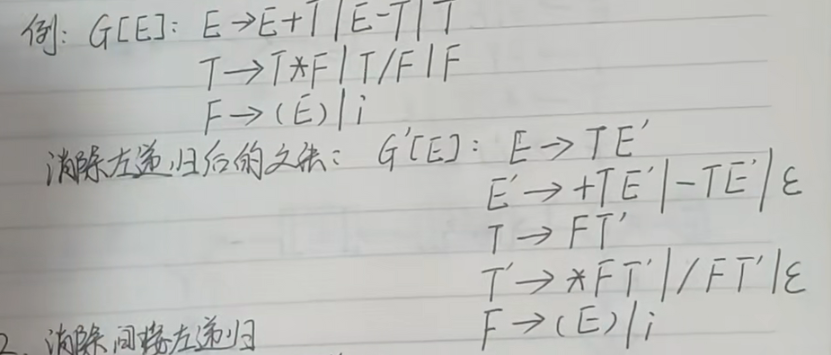 例: G[E]: E→E+T|E-T|T
T→T*F|T/F|F
F→(E)|i
消除左递归后的文法: G'[E]: E→TE'
E'→+TE'|-TE'|ε
T→FT'
T'→*FT'|/FT'|ε
F→(E)|i
2、消除间接左递归